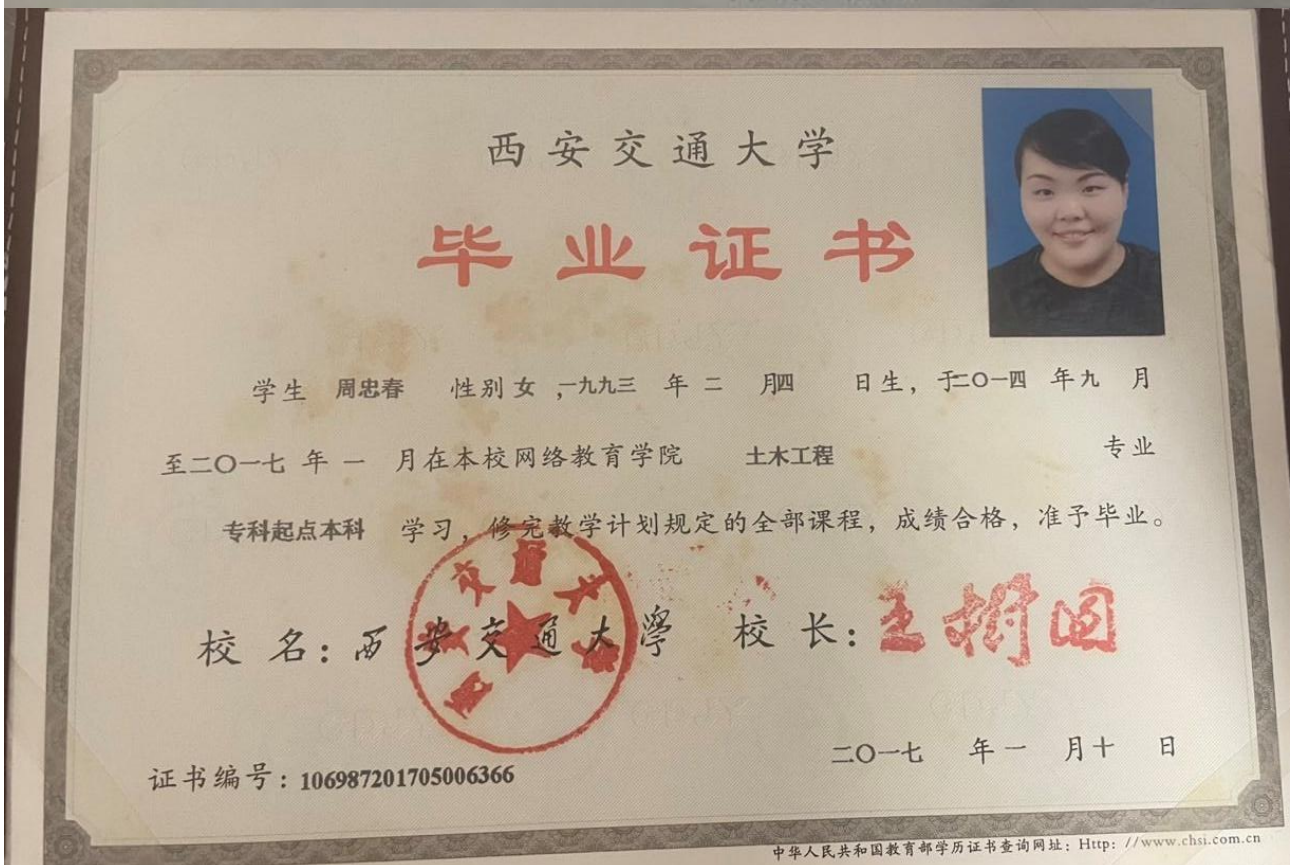 西安交通大学
毕业证书
学生 周忠春 性别 女 ,一九九三 年 二 月四 日生，于二〇一四 年 九 月
至二〇一七 年 一 月在本校网络教育学院 土木工程 专业
专科起点本科 学习，修完教学计划规定的全部课程，成绩合格，准予毕业。
校 名：西安交通大學 校 长：王树国
二〇一七 年 一 月 十 日
证书编号：106987201705006366
中华人民共和国教育部学历证书查询网址：Http：//www.chsi.com.cn